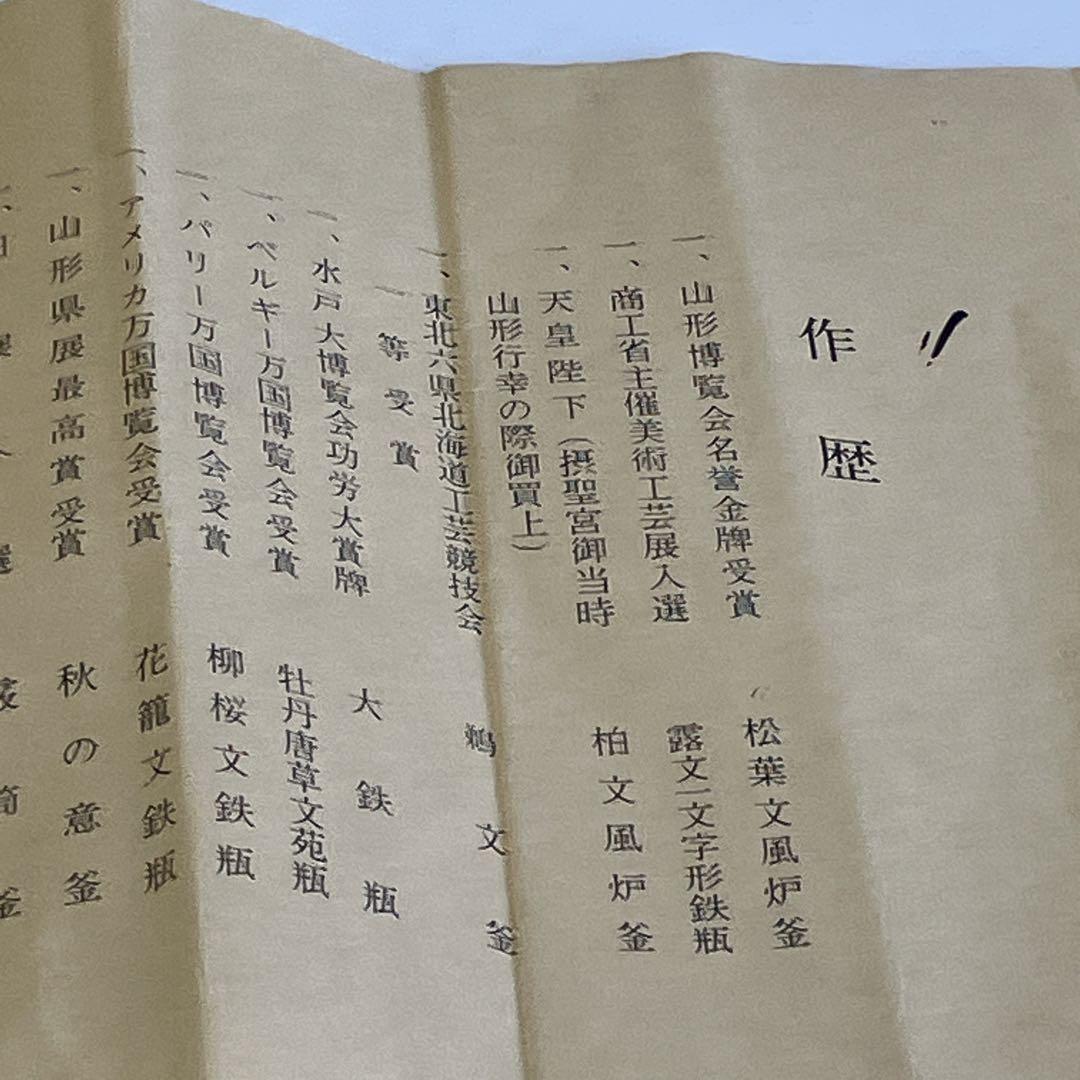 作歴
一、山形博覧会名誉金牌受賞 松葉文風炉釜
一、商工省主催美術工芸展入選 露文一文字形鉄瓶
一、天皇陛下(摂聖宮御当時
山形行幸の際御買上) 柏文風炉釜
一、東北六県北海道工芸競技会
一等受賞 鵜文釜
一、水戸大博覧会功労大賞牌 大鉄瓶
一、ベルギー万国博覧会受賞 牡丹唐草文苑瓶
一、パリー万国博覧会受賞 柳桜文鉄瓶
一、アメリカ万国博覧会受賞 花籠文鉄瓶
一、山形県展最高賞受賞 秋の意釜
一、 展 選 筒釜